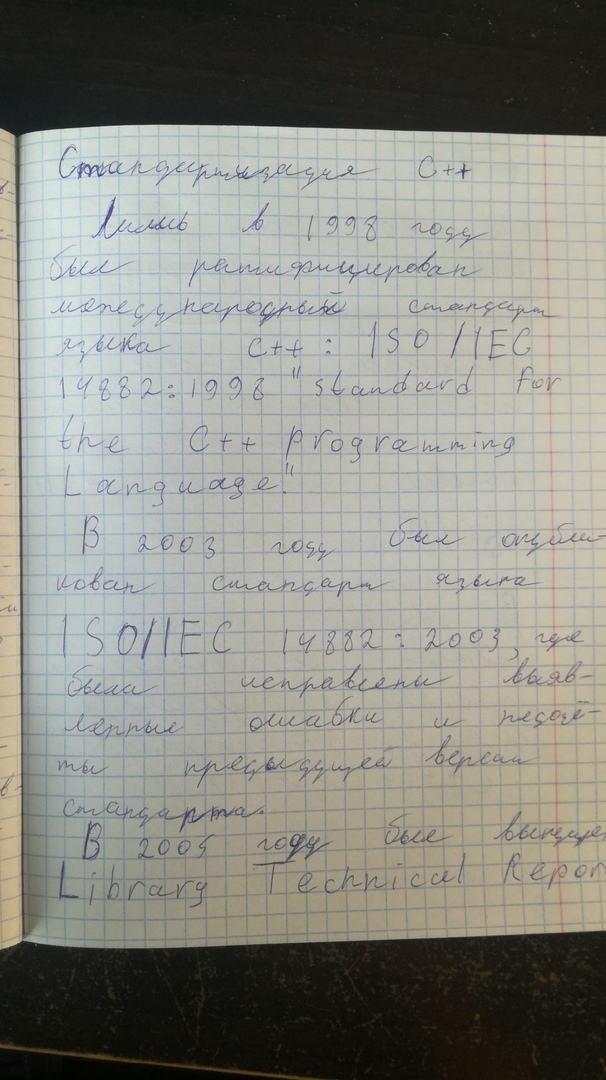 Стандартизация C++
Лишь в 1998 году
был ратифицирован
международный стандарт
языка C++: ISO/IEC
14882:1998 "Standard for
the C++ Programming
Language".
В 2003 году был опубли-
кован стандарт языка
ISO/IEC 14882:2003, где
была исправлены выяв-
ленные ошибки и недочё-
ты предыдущей версии
стандарта.
В 2005 году был выпущен
Library Technical Repor